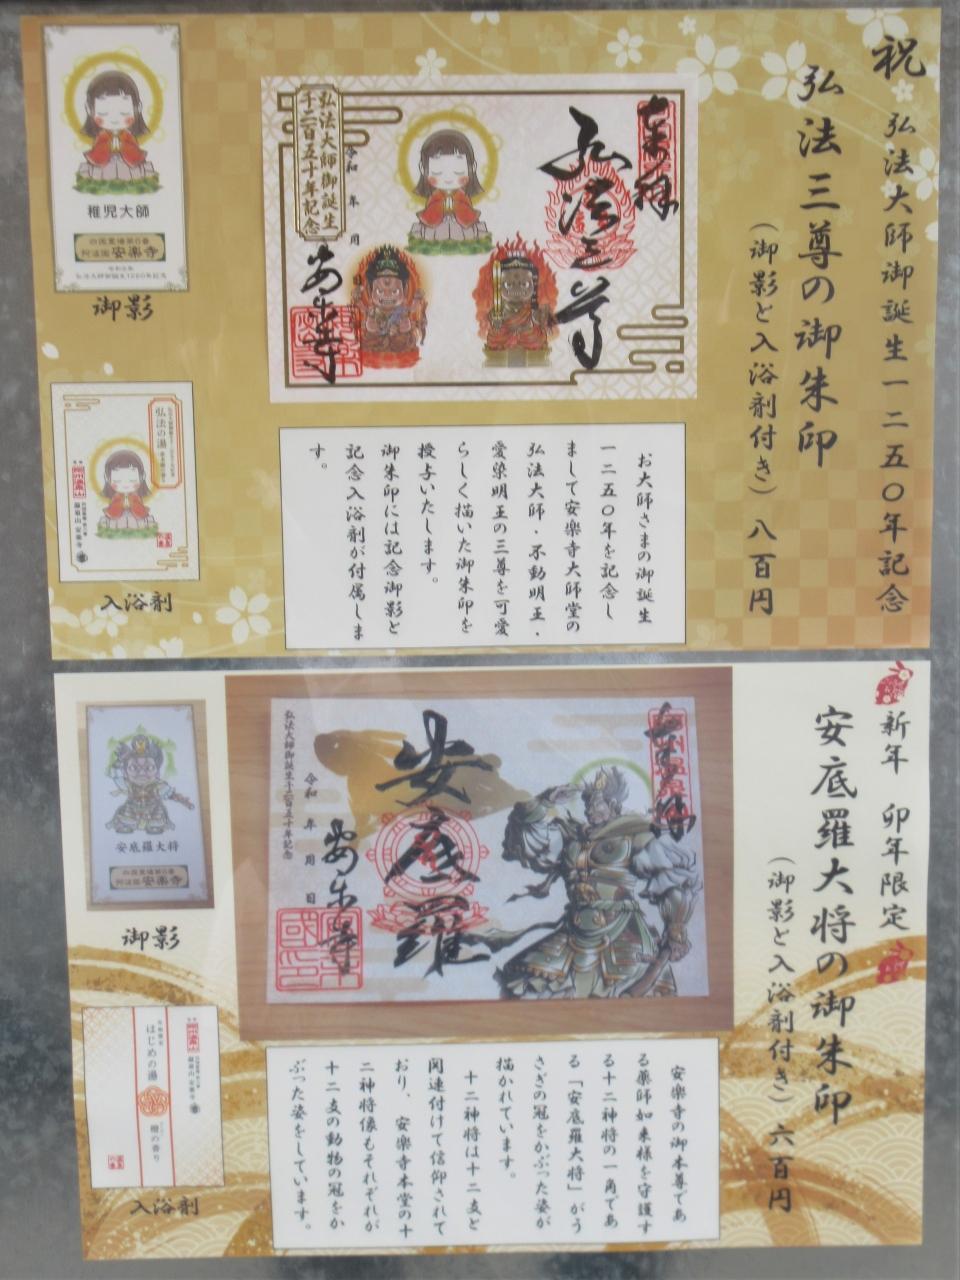 祝 弘法大師御誕生一二五〇年記念
弘法三尊の御朱印
(御影と入浴剤付き) 八百円
奉拝
弘法三尊
安楽寺
令和 年 月 日
弘法大師御誕生
千二百五十年記念
稚児大師
四国霊場第6番
阿波国 安楽寺
御影
弘法の湯
温泉山 安楽寺
入浴剤
お大師さまの御誕生
一二五〇年を記念し
まして安楽寺大師堂の
弘法大師・不動明王・
愛染明王の三尊を可愛
らしく描いた御朱印を
授与いたします。
御朱印には記念御影と
記念入浴剤が付属しま
す。
新年 卯年限定
安底羅大将の御朱印
(御影と入浴剤付き) 六百円
奉拝
安底羅
安楽寺
令和 年 月 日
弘法大師御誕生千二百五十年記念
安底羅大将
四国霊場第6番
阿波国 安楽寺
御影
温泉山 安楽寺
はじめの湯
檜の香り
入浴剤
安楽寺の御本尊であ
る薬師如来様を守護す
る十二神将の一角であ
る「安底羅大将」がう
さぎの冠をかぶった姿が
描かれています。
十二神将は十二支と
関連付けて信仰されて
おり、安楽寺本堂の十
二神将像もそれぞれが
十二支の動物の冠をか
ぶった姿をしています。